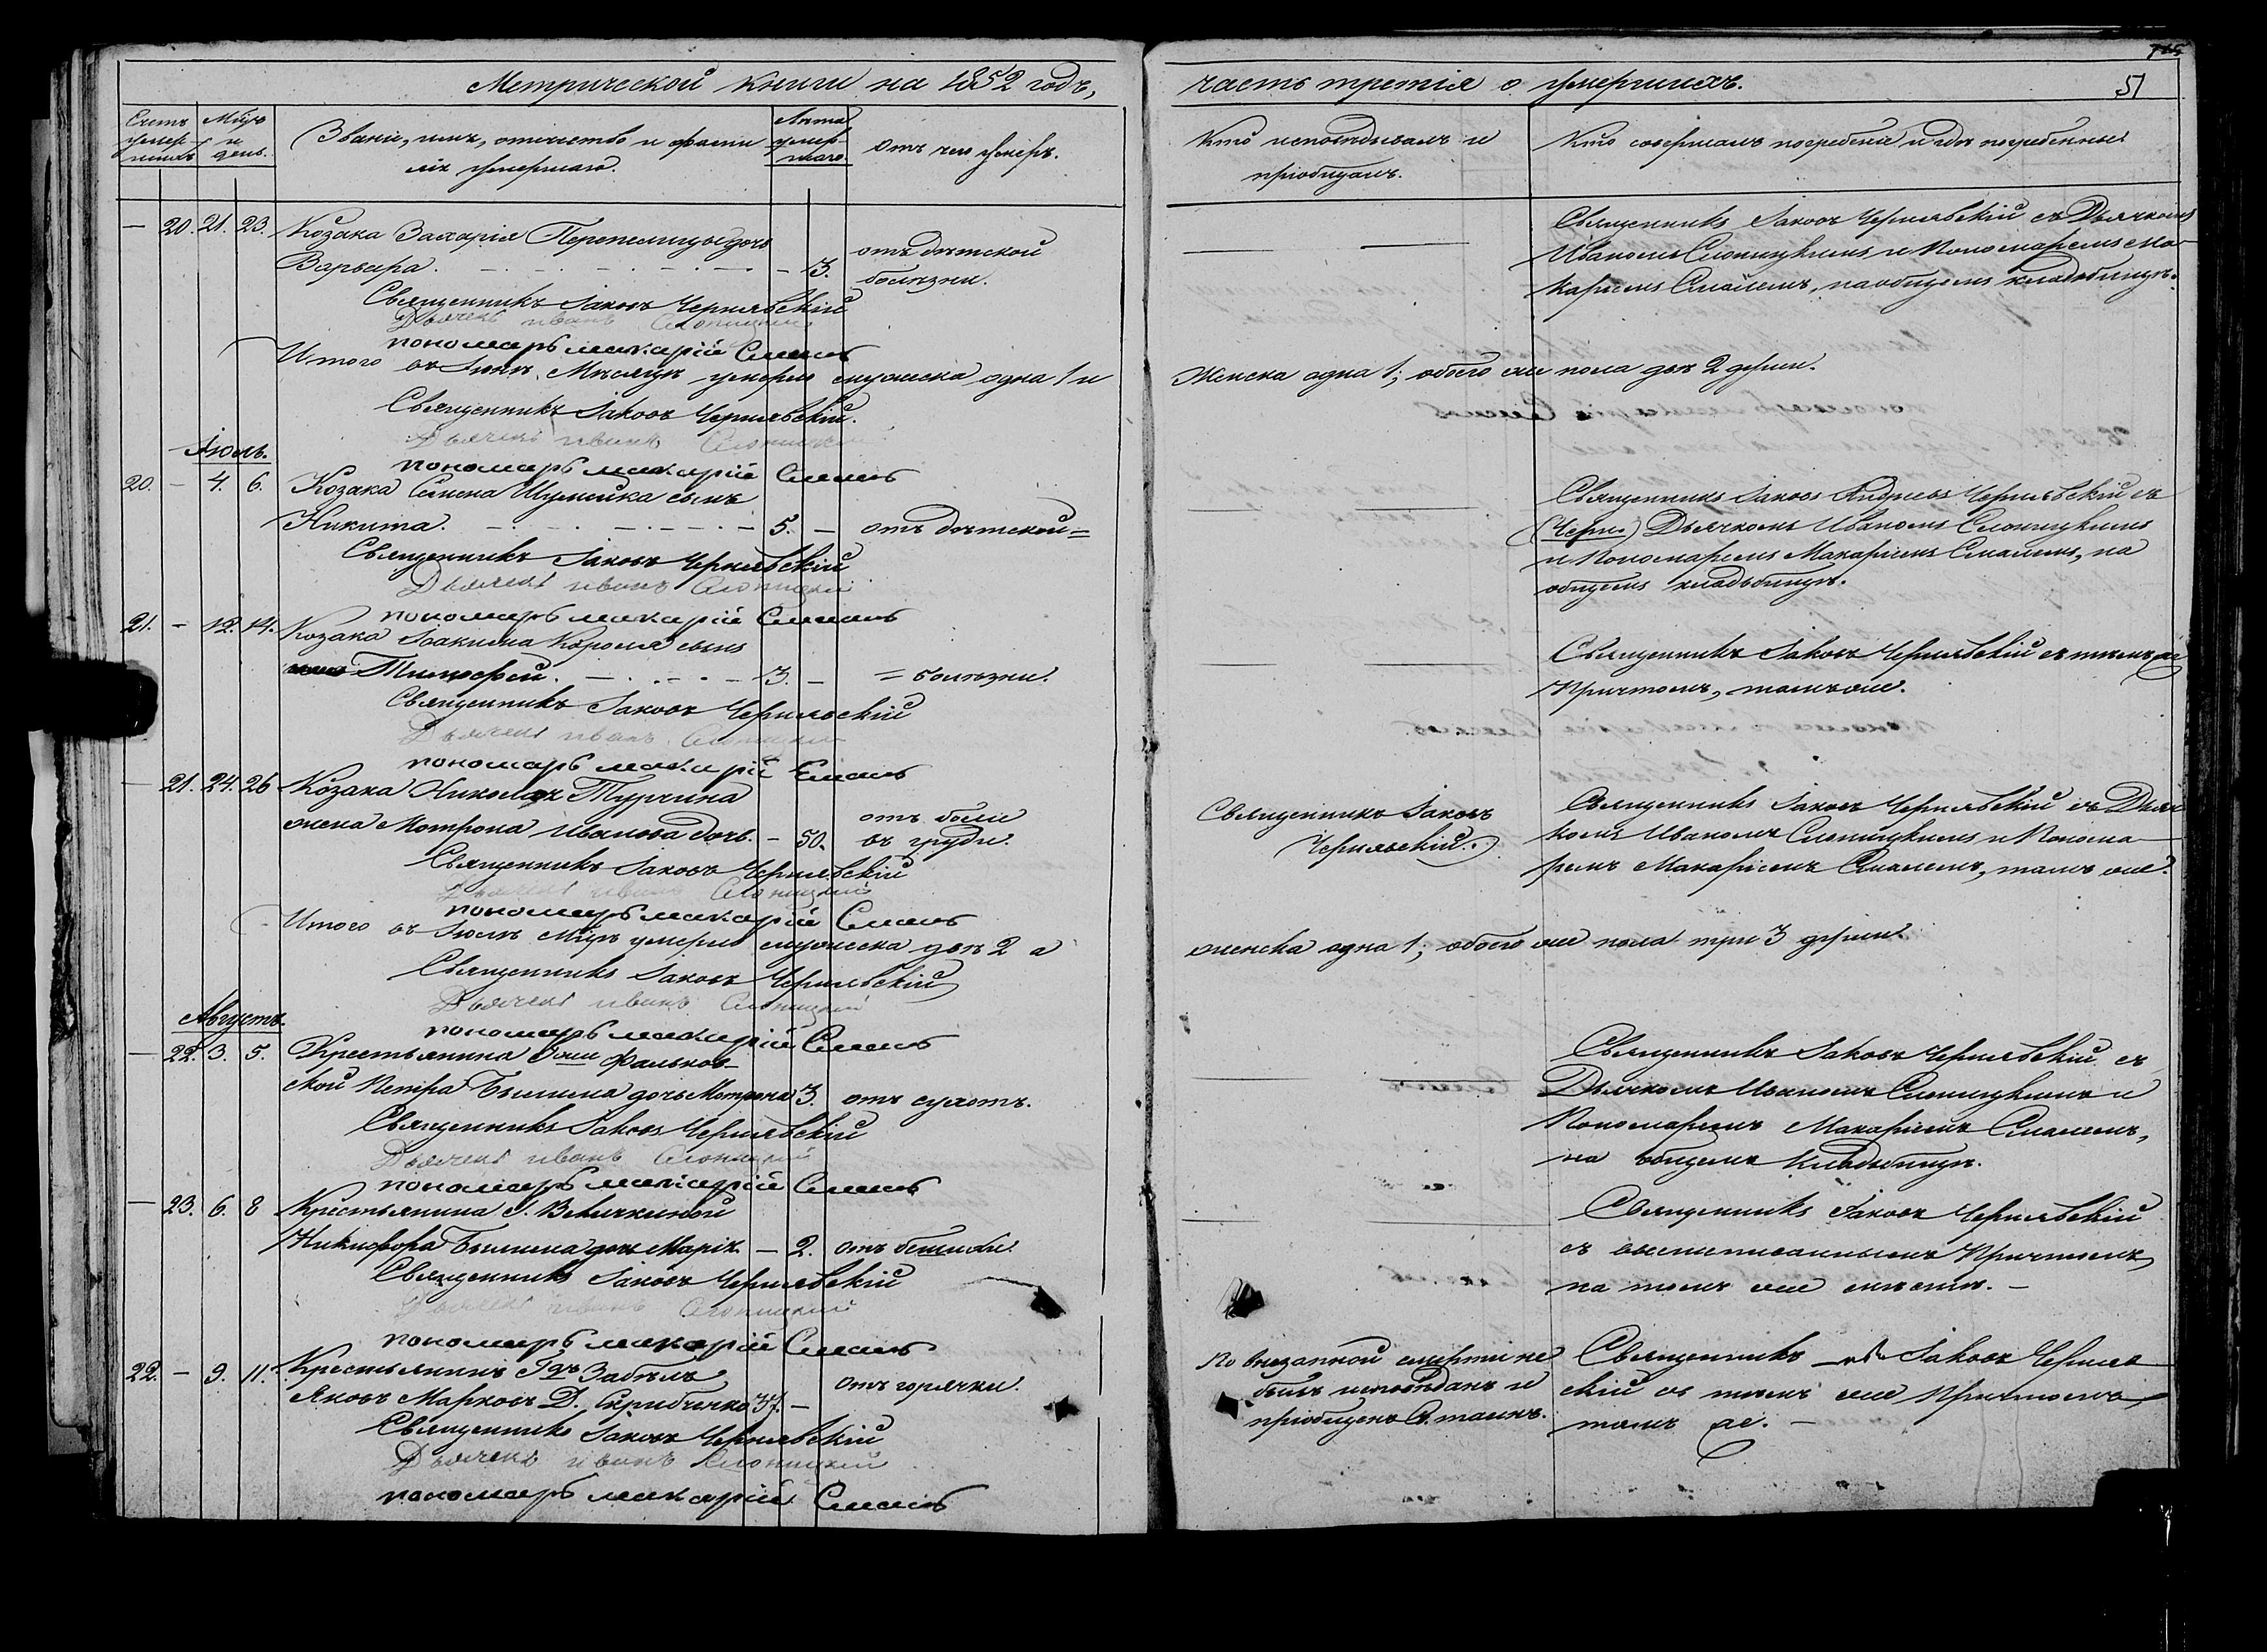 Метрической книги на 1852 годъ,
Счетъ умер-шихъ
Мѣсяцъ и день.
Званіе, имя, отчество и фами
лія умершаго.
Лѣта умер-шаго
Отъ чего умеръ.
— 20. 21. 23. Козака Захарія Перепелицы дочь
Варвара. — 3. отъ дѣтской
болѣзни.
Священникъ Іаковъ Чернявскій
Дьячекъ иванъ Слоницкій
пономарь макарій Смаль
Итого въ Іюнѣ Мѣсяцѣ умерло мужеска одна 1 и
Священникъ Іаковъ Чернявскій.
Дьячекъ иванъ Слоницкій
пономарь макарій Смаль
Іюль.
20. — 4. 6. Козака Семена Шумейка сынъ
Никита. 5. — отъ дѣтской=
Священникъ Іаковъ Чернявскій
Дьячекъ иванъ Слоницкій
пономарь макарій Смаль
21. — 12. 14. Козака Іоакима Короля сынъ
Тимофей. 3. — =болѣзни.
Священникъ Іаковъ Чернявскій
Дьячекъ иванъ Слоницкій
пономарь макарій Смаль
— 21. 24. 26 Козака Николая Турчина
жена Мотрона Иванова дочь. — 50. отъ боли
въ груди.
Священникъ Іаковъ Чернявскій
Дьячекъ иванъ Слоницкій
пономарь макарій Смаль
Итого въ Іюлѣ мѣцѣ умерло мужеска два 2 а
Священникъ Іаковъ Чернявскій
Дьячекъ иванъ Слоницкій
пономарь макарій Смаль
Августъ.
— 22. 3. 5. Крестьянина Гжи Фальков-
ской Петра дочь Мотрона 3. отъ сухотъ.
Священникъ Іаковъ Чернявскій
Дьячекъ иванъ Слоницкій
пономарь макарій Смаль
— 23. 6. 8 Крестьянина Г. Величкиной
Никифора дочь Марія — 2. отъ
Священникъ Іаковъ Чернявскій
Дьячекъ иванъ Слоницкій
пономарь макарій Смаль
22. — 9. 11. Крестьянинъ Гдъ Забѣлъ
Яковъ Марковъ Д. Скрибченко 37. — отъ горячки.
Священникъ Іаковъ Чернявскій
Дьячекъ иванъ Слоницкій
пономарь макарій Смаль
часть третія о умершихъ.
51
Кто исповѣдывалъ и
пріобщалъ.
Кто совершалъ погребеніе и гдѣ погребенны
Священникъ Іаковъ Чернявскій съ Дьячкомъ
Иваномъ Слоницкимъ и Пономаремъ Ма-
каріемъ Смалемъ, на общемъ кладбищѣ.
Женска одна 1; обоего же пола двѣ 2 души.
Священникъ Іаковъ Андреевъ Чернявскій съ
(Черн.) Дьячкомъ Иваномъ Слоницкимъ
и Пономаремъ Макаріемъ Смалемъ, на
общемъ кладбищѣ.
Священникъ Іаковъ Чернявскій съ тѣмъ же
Причтомъ, тамъ же.
Священникъ Іаковъ
Чернявскій.
Священникъ Іаковъ Чернявскій съ Дьяч
комъ Иваномъ Слоницкимъ и Понома
ремъ Макаріемъ Смалемъ, тамъ же.
женска одна 1; обоего же пола три 3 души.
Священникъ Іаковъ Чернявскій съ
Дьячкомъ Иваномъ Слоницкимъ и
Пономаремъ Макаріемъ Смалемъ,
на общемъ кладбищѣ.
Священникъ Іаковъ Чернявскій
съ вышеписаннымъ Причтомъ
на томъ же мѣстѣ. —
По внезапной смерти не
былъ исповѣданъ и
пріобщенъ С. таинъ.
Священникъ Іаковъ Черняв
скій съ тѣмъ же Причтомъ
тамъ же. —